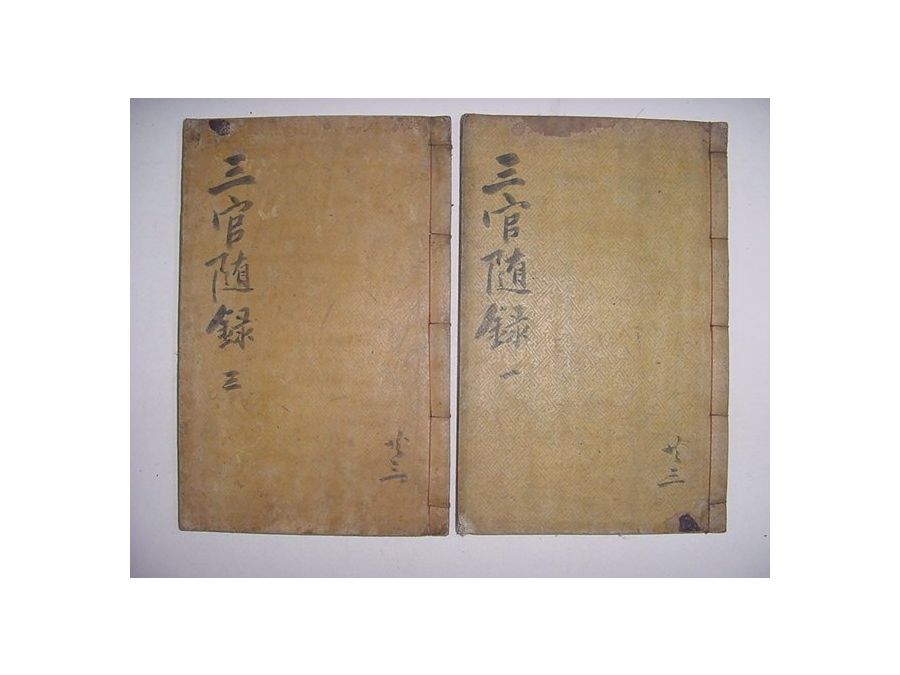 三官随録 一
共三
三官随録 三
共三